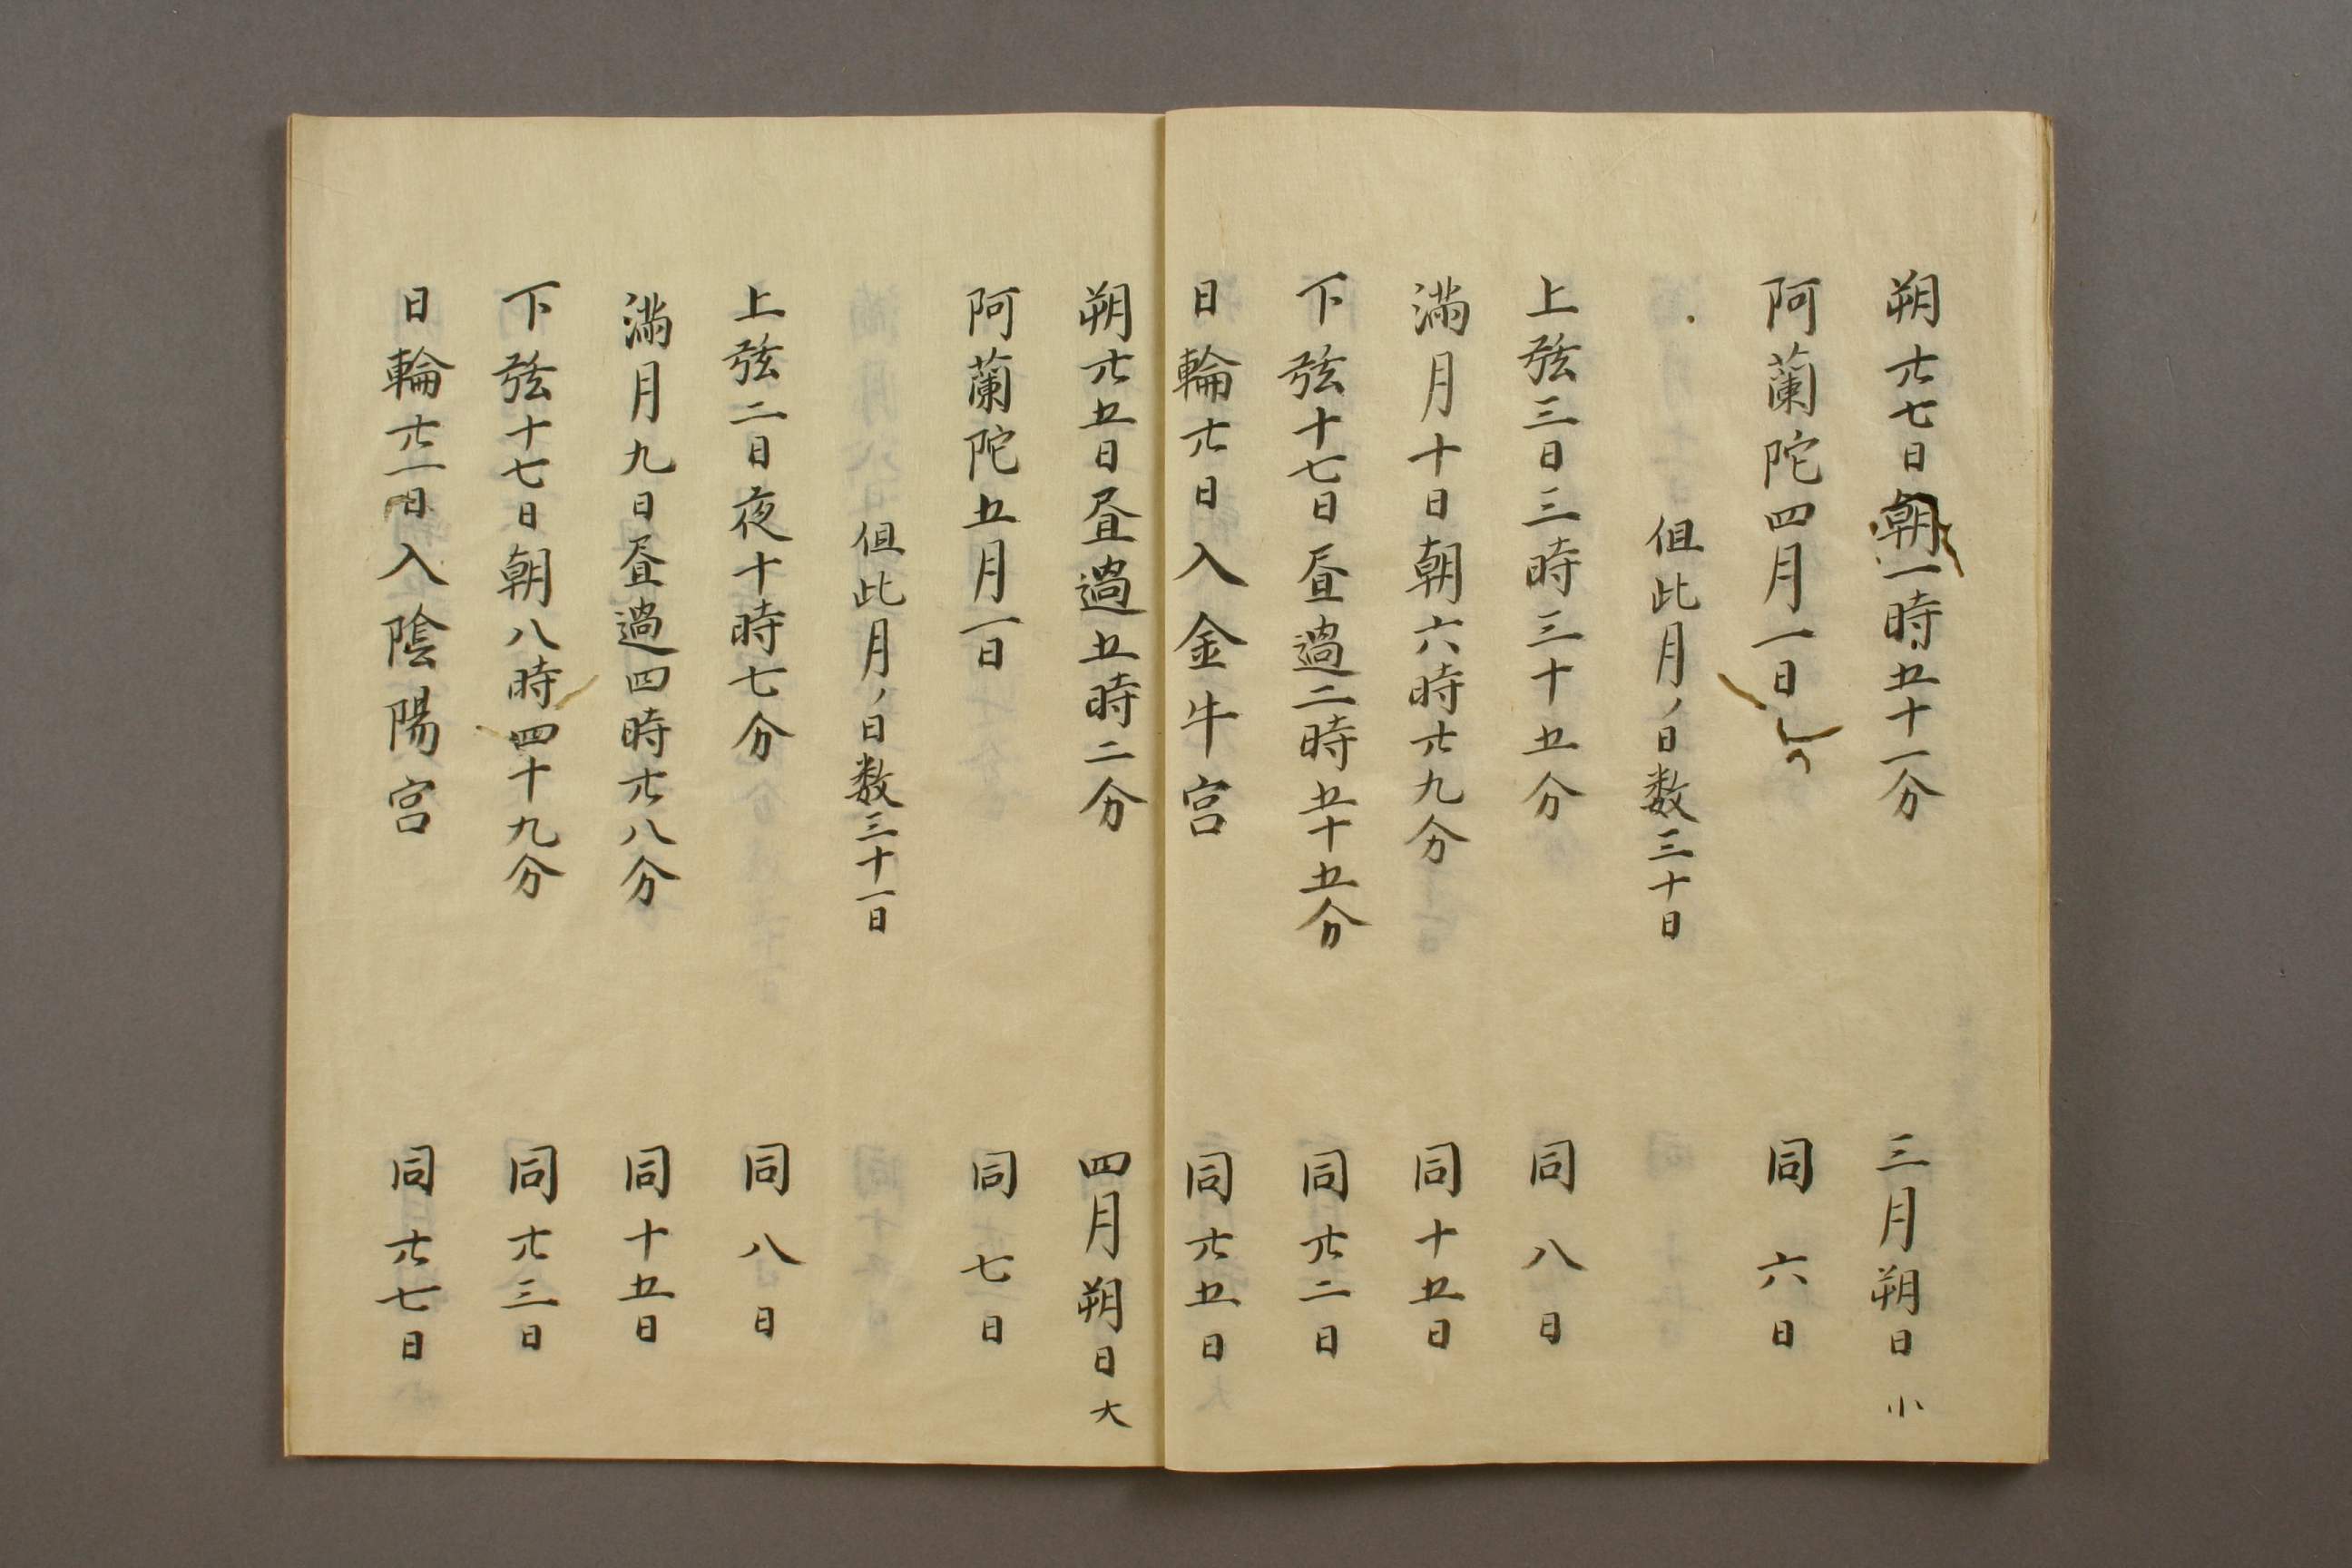 朔廿七日朝一時五十一分 三月朔日小
阿蘭陀四月一日 同六日
但此月ノ日数三十日
上弦三日三時三十五分 同八日
満月十日朝六時廿九分 同十五日
下弦十七日昼過二時五十五分 同廿二日
日輪廿日入金牛宮 同廿五日
朔廿五日昼過五時二分 四月朔日大
阿蘭陀五月一日 同七日
但此月ノ日数三十一日
上弦二日夜十時七分 同八日
満月九日昼過四時廿八分 同十五日
下弦十七日朝八時四十九分 同廿三日
日輪廿一日入陰陽宮 同廿七日